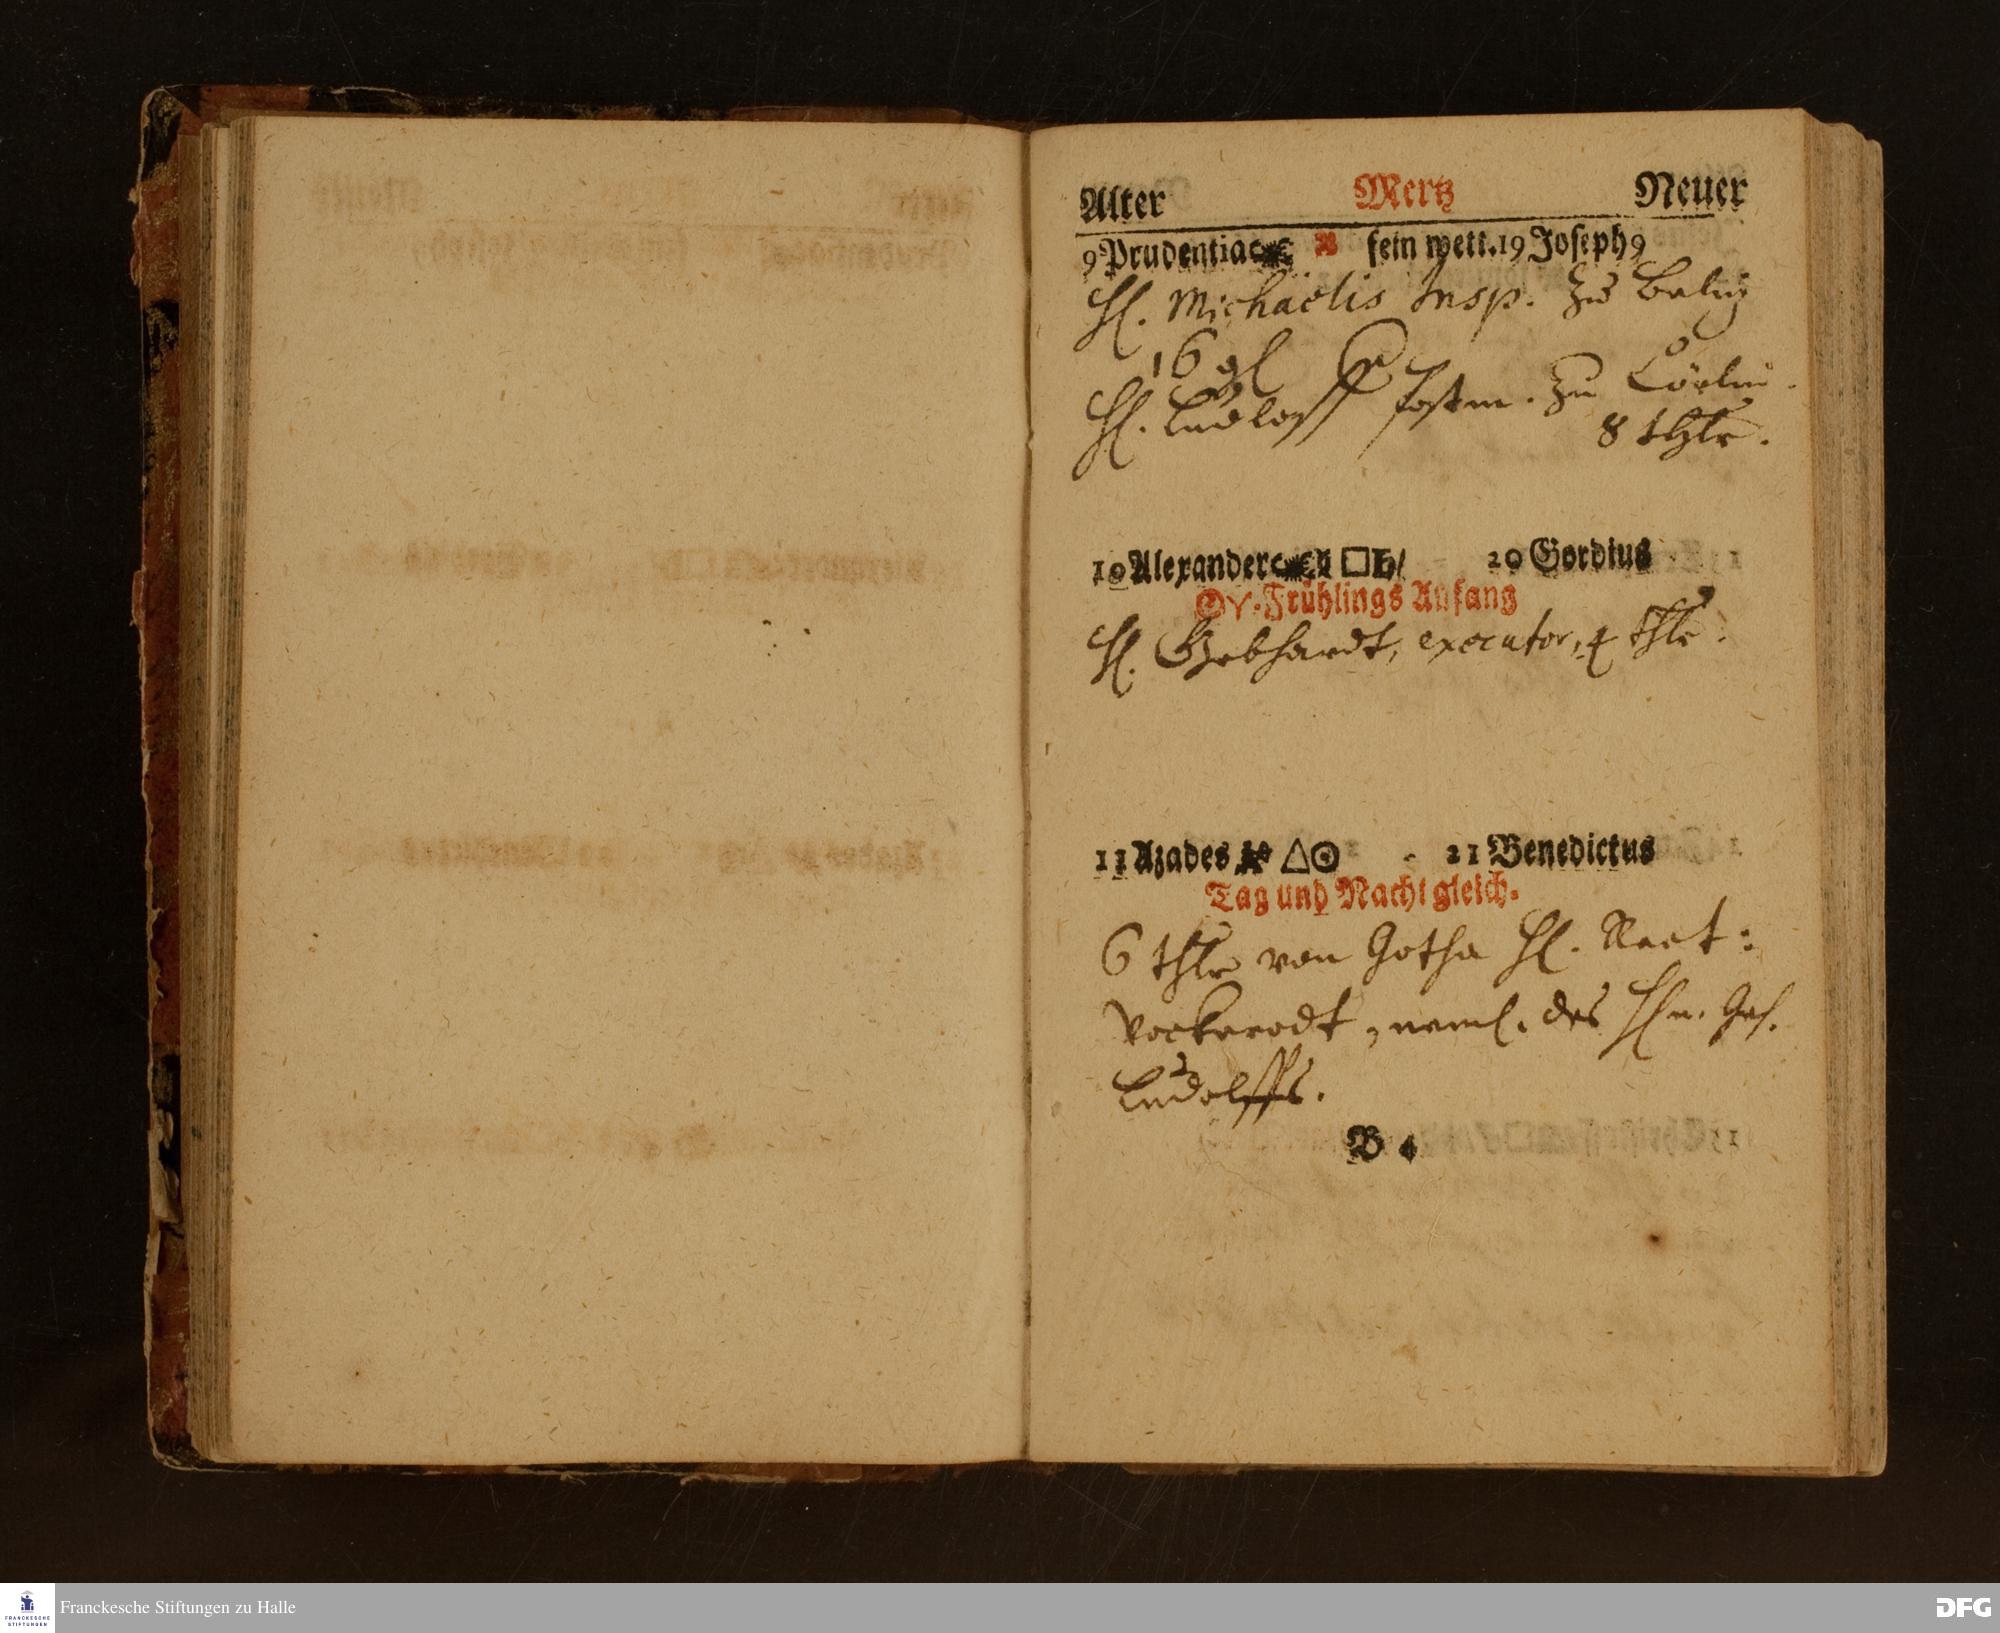 Alter Mertz Neuer
9 Prudentia fein wett. 19 Joseph 9
H. Michaelis Insp. zu Beltz
16 gl
H. Ludloff Postm. zu Cörlin.
8 thlr.
10 Alexander □♄/ 20 Gordius
☉♈. Frühlings Anfang
H. Gebhardt, executor, 4 thlr.
11 Azades △☉ 21 Benedictus
Tag und Nacht gleich.
6 thlr von Gotha H. Rect:
Vockerodt, neml. des Hn. Geh.
Ludolffs.
B 4
Franckesche Stiftungen zu Halle
FRANCKESCHE
STIFTUNGEN
DFG